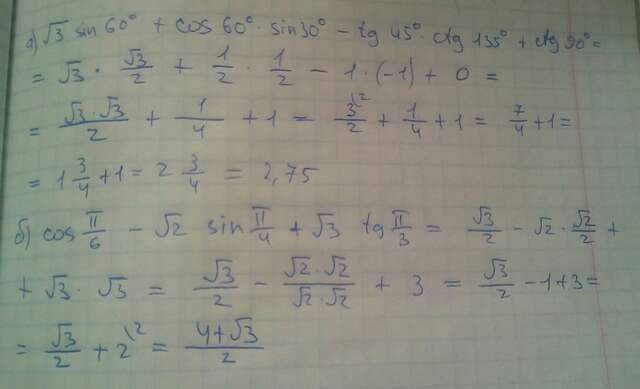 а) √3 sin 60° + cos 60° · sin 30° − tg 45° · ctg 135° + ctg 90° =
= √3 · √3/2 + 1/2 · 1/2 − 1 · (−1) + 0 =
= √3·√3/2 + 1/4 + 1 = 3\²/2 + 1/4 + 1 = 7/4 + 1 =
= 1 3/4 + 1 = 2 3/4 = 2,75
б) cos π/6 − √2 sin π/4 + √3 tg π/3 = √3/2 − √2 · √2/2 +
+ √3 · √3 = √3/2 − √2·√2/√2·√2 + 3 = √3/2 − 1 + 3 =
= √3/2 + 2\² = 4+√3/2